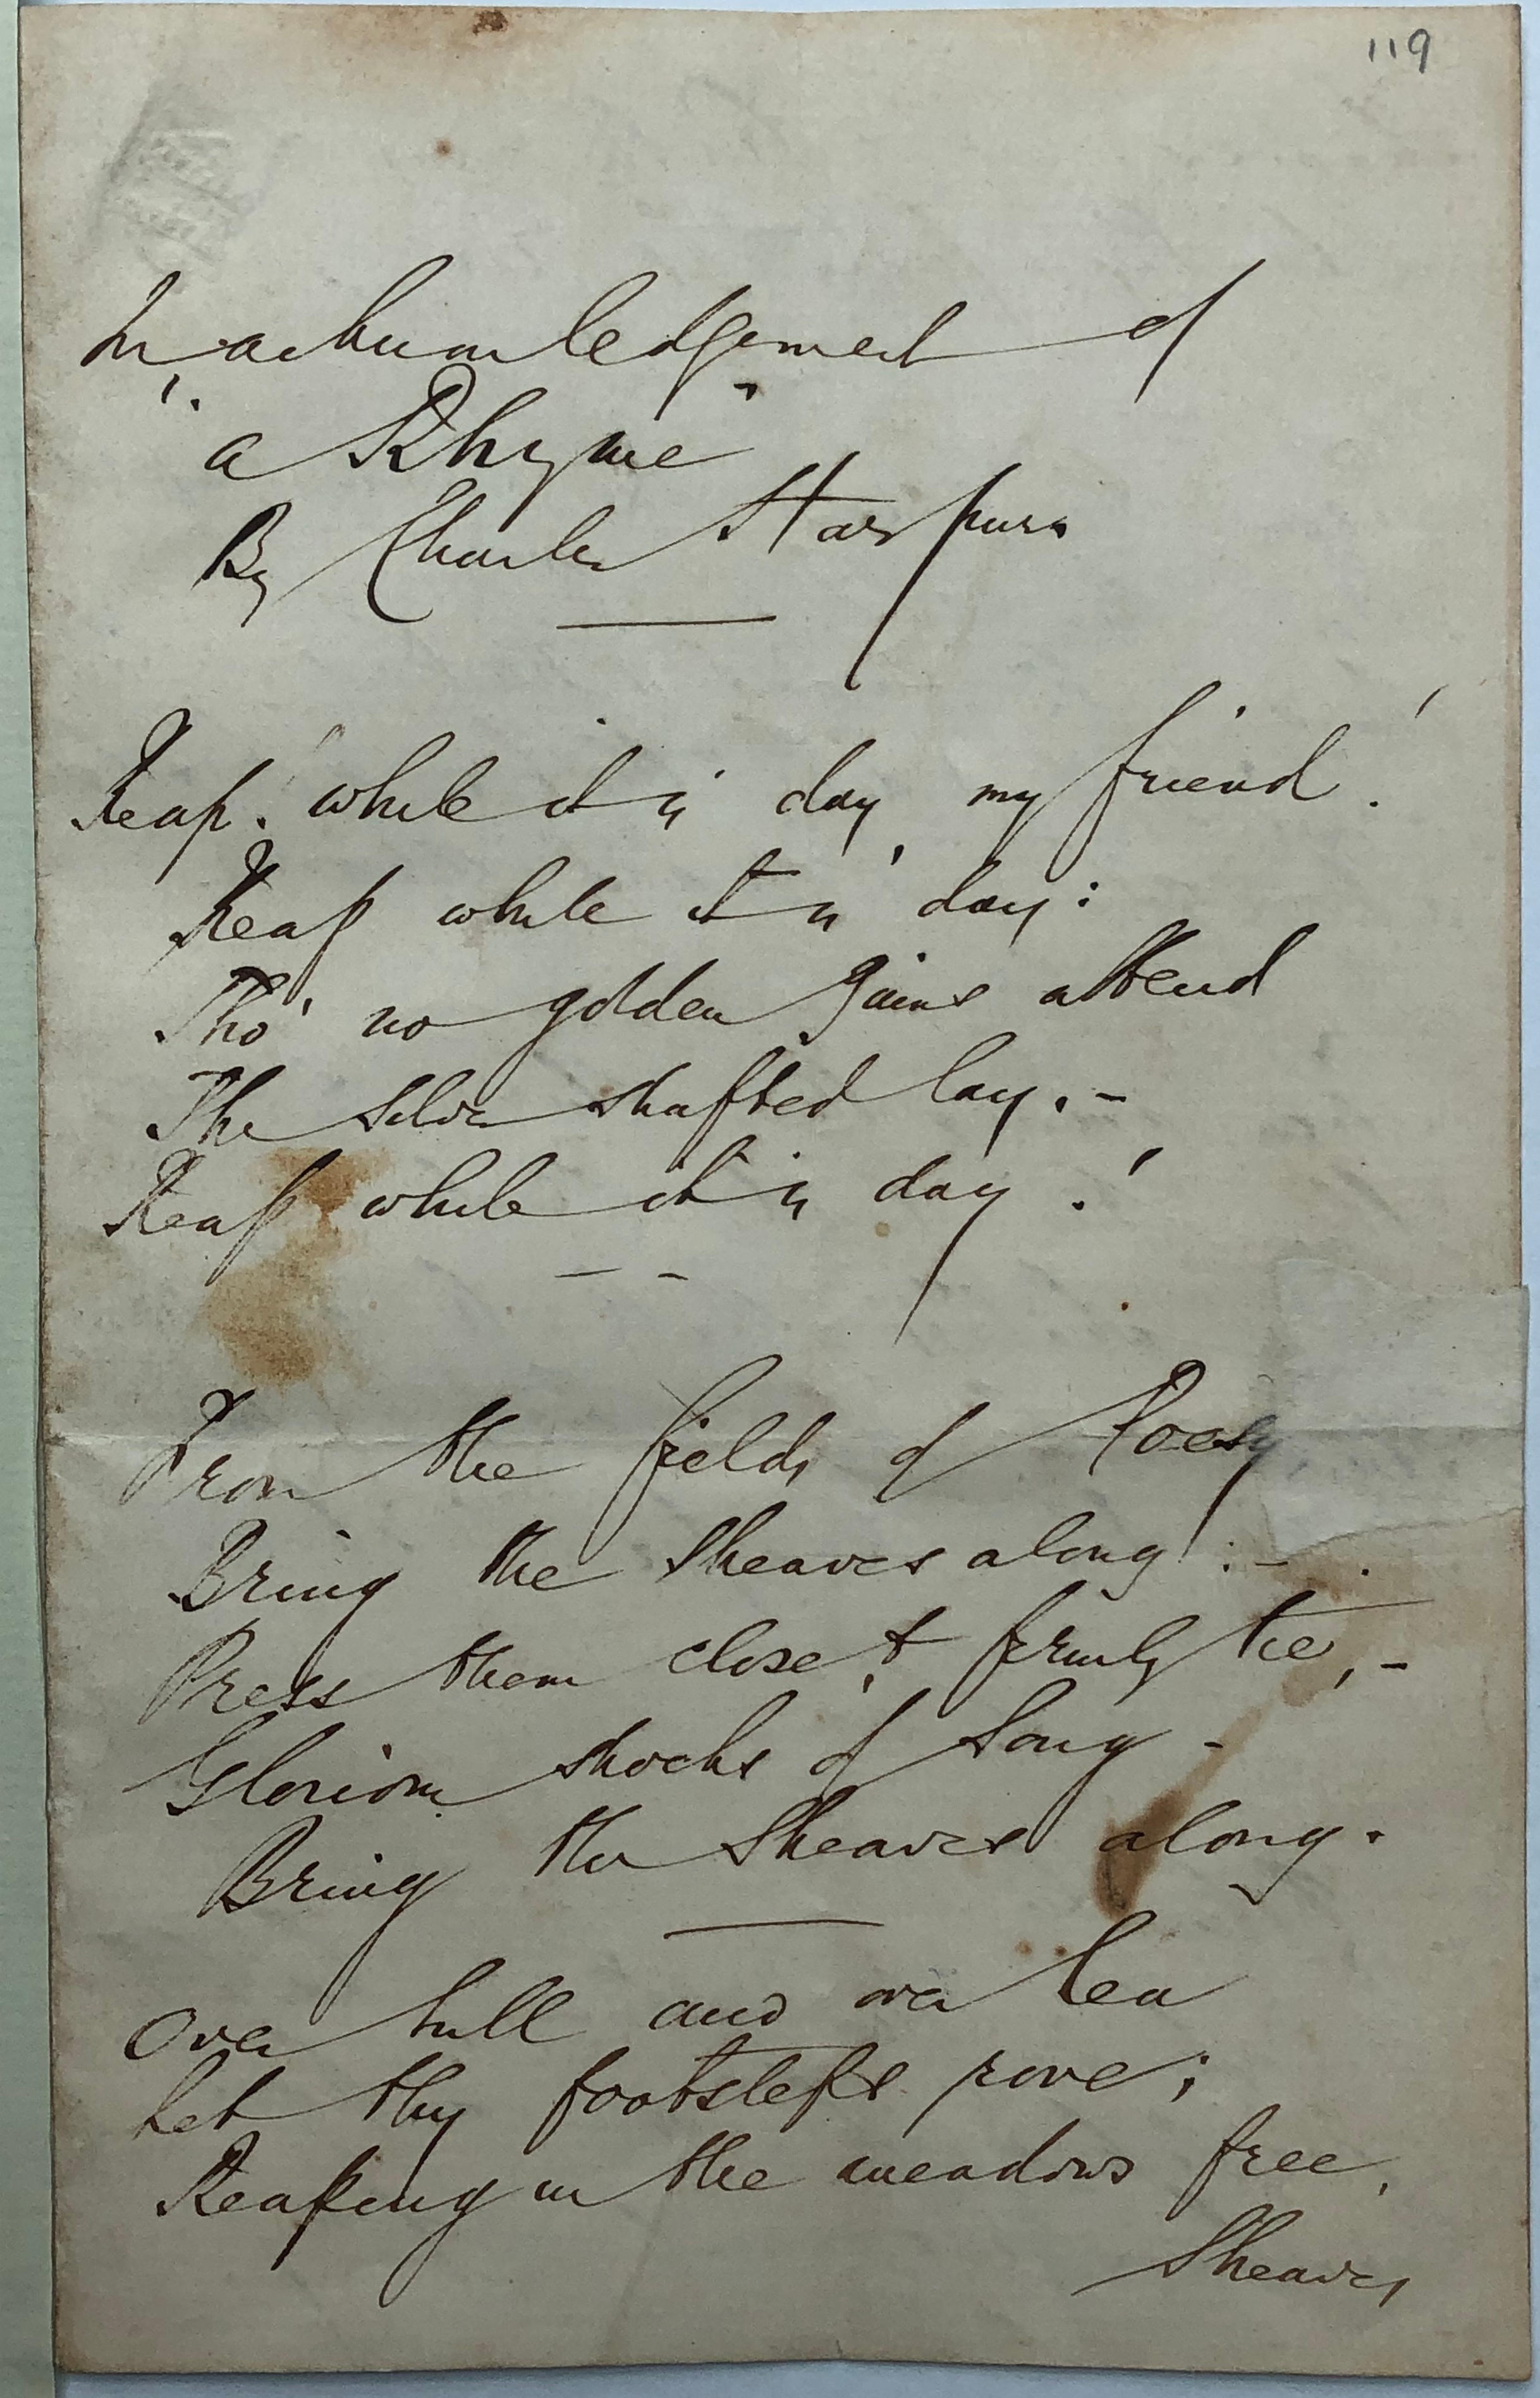 119
In acknowledgement of
"a Rhyme"
By Charles Harpur.
Reap! while it is day, my friend!
Reap while it is day:
Tho' no golden gains attend
The silver shafted lay. -
Reap while it is day!
From the fields of Poesy
Bring the Sheaves along! : -
Press them close, & firmly tie, -
Glorious shocks of Song -
Bring the Sheaves along.
Over hill and over lea
Let thy footsteps rove;
Reaping in the meadows free,
Sheaves